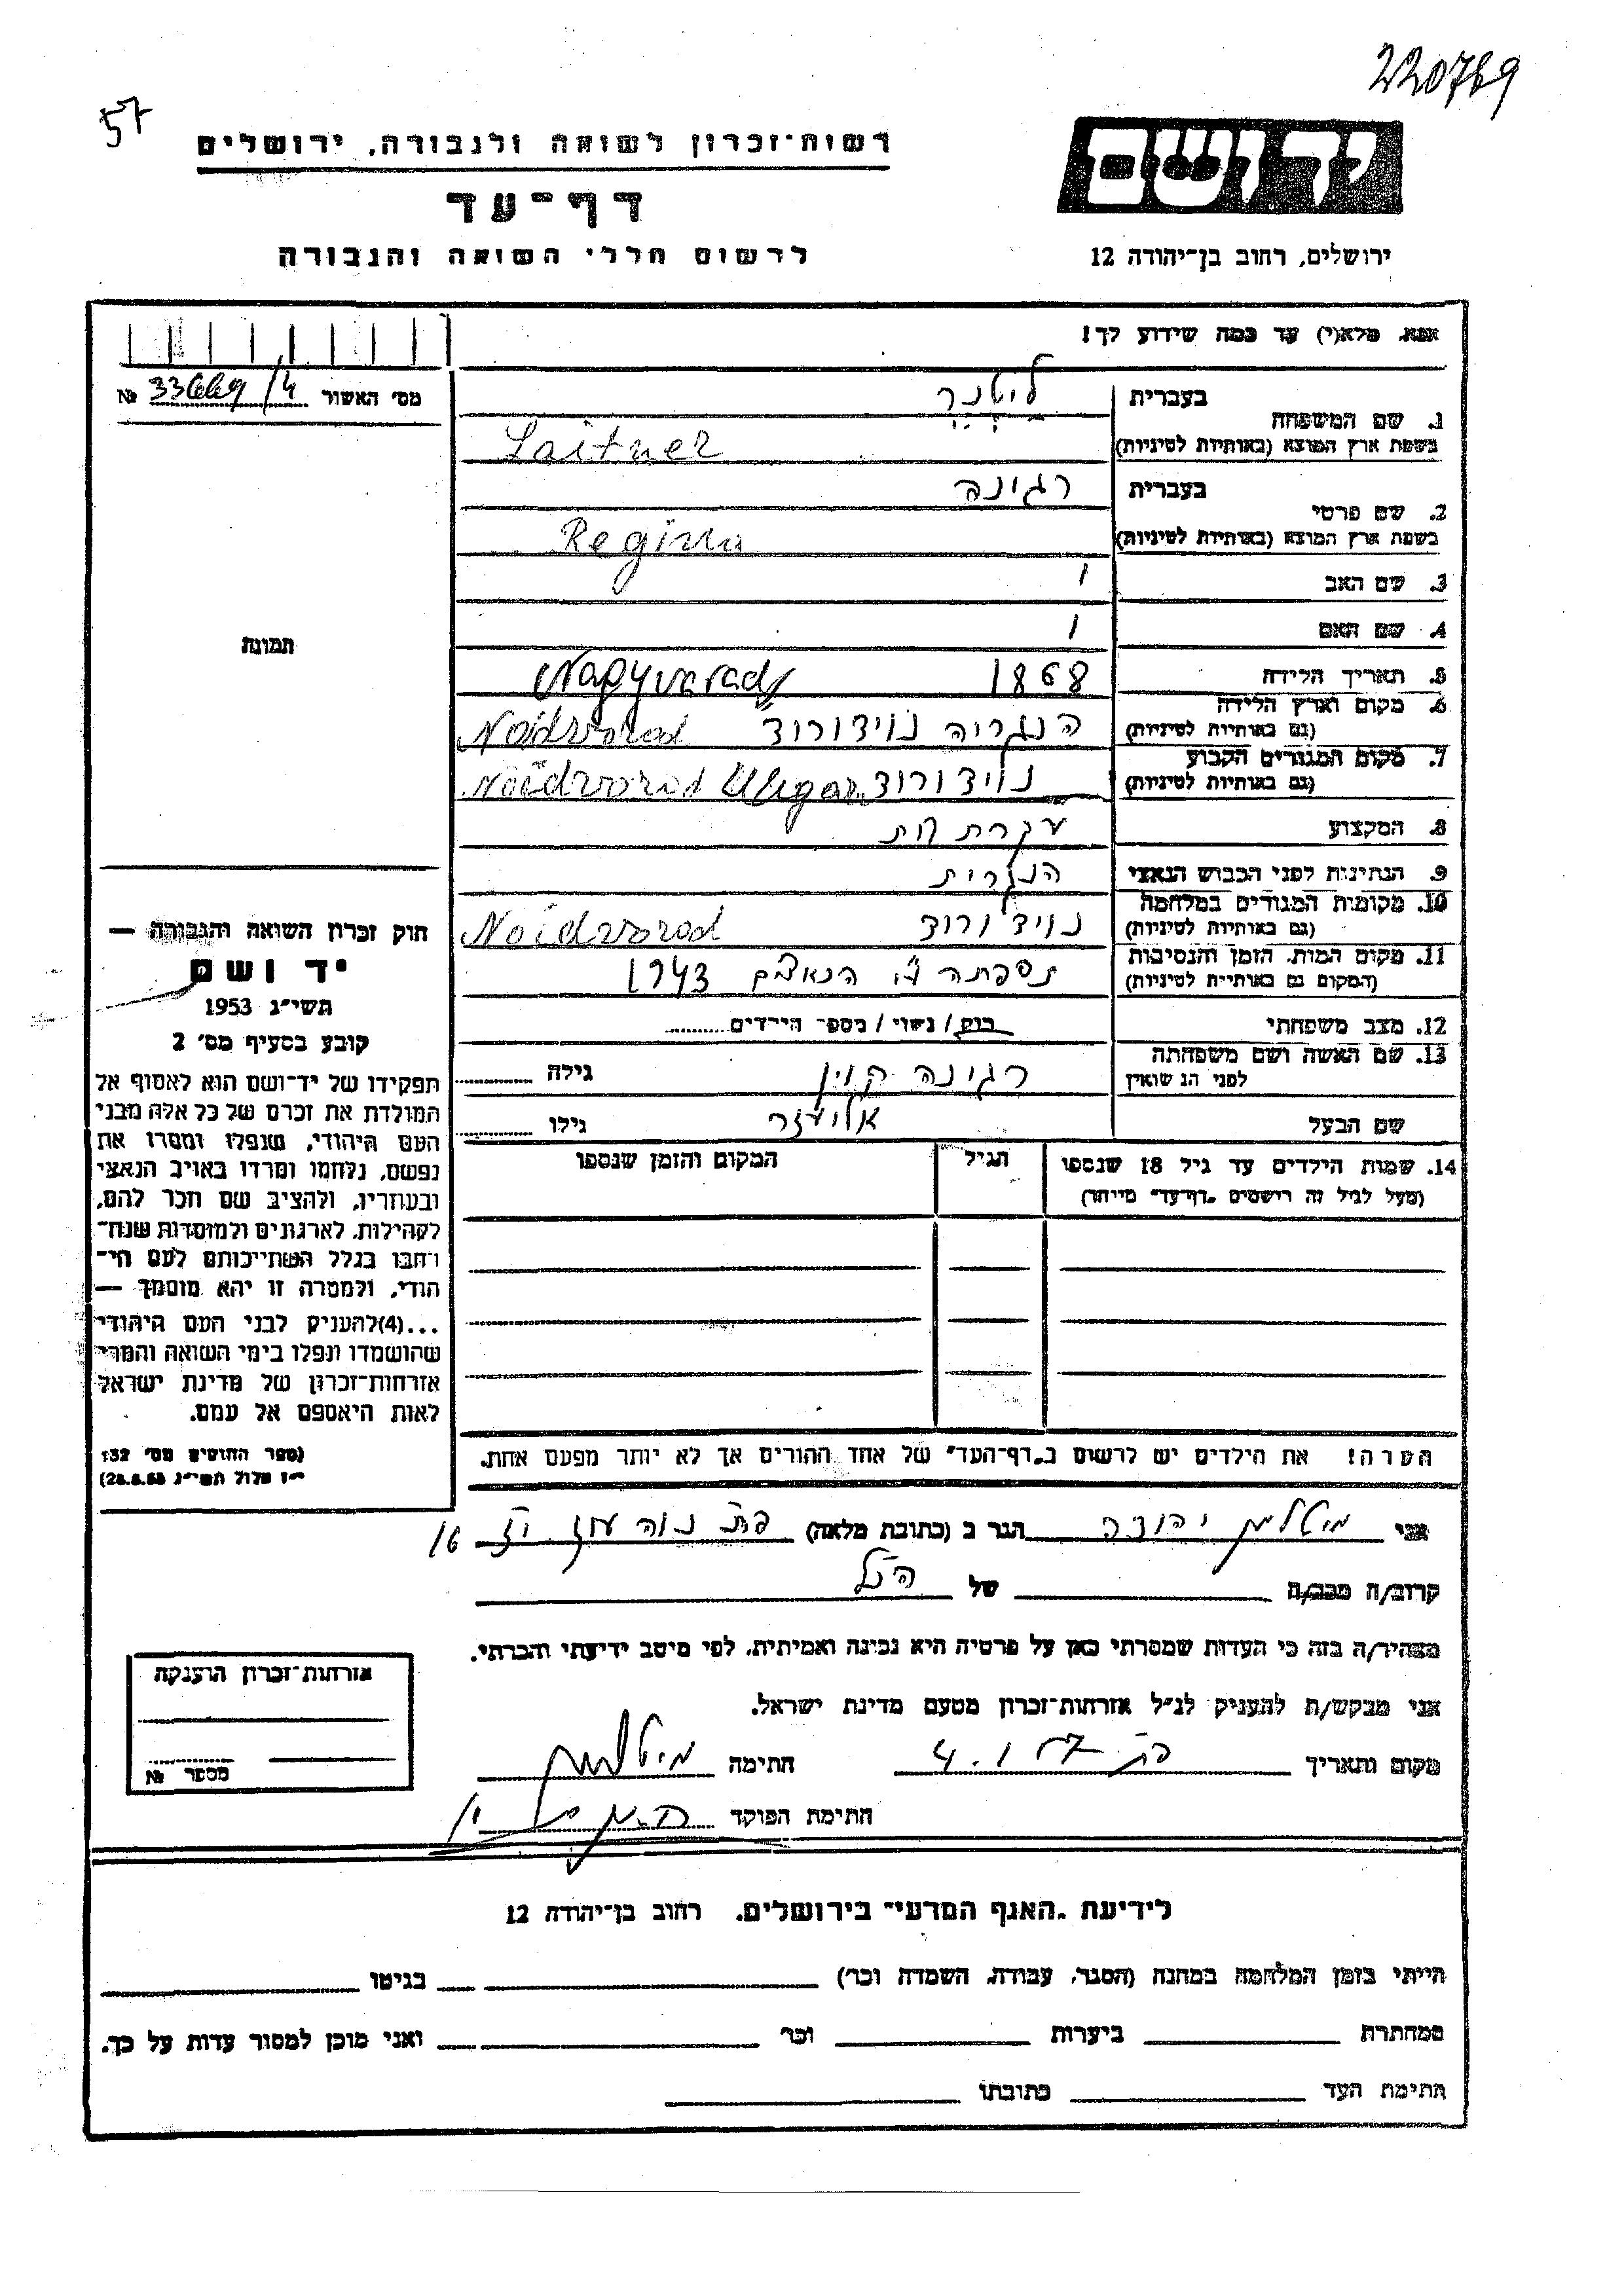 220789
57
רשות־זכרון לשואה ולגבורה, ירושלים
דף־עד
לרשום חללי השואה והגבורה
יד ושם
ירושלים, רחוב בן־יהודה 12
אנא, מלא(י) עד כמה שידוע לך!
מס׳ האשור
№ 33669/4
1. שם המשפחה
בעברית
ליטנר
בשפת ארץ המוצא (באותיות לטיניות)
Laitner
2. שם פרטי
בעברית
רגינה
בשפת ארץ המוצא (באותיות לטיניות)
Regina
3. שם האב
4. שם האם
5. תאריך הלידה
1868
Nagyvarad
6. מקום וארץ הלידה
(גם באותיות לטיניות)
הנגריה נוידורוד Noidvorod
7. מקום המגורים הקבוע
(גם באותיות לטיניות)
נוידורוד Noidvorod Ungar
8. המקצוע
עקרת בית
9. הנתינות לפני הכבוש הנאצי
הנגרית
10. מקומות המגורים במלחמה
(גם באותיות לטיניות)
נוידורוד Noidvorod
11. מקום המות, הזמן והנסיבות
(המקום גם באותיות לטיניות)
נספתה ע״י הנאצים 1943
12. מצב משפחתי
רוק / נשוי / מספר הילדים
13. שם האשה ושם משפחתה
לפני הנשואין
רגינה קוין
גילה
שם הבעל
אליעזר
גילו
14. שמות הילדים עד גיל 18 שנספו
(מעל לגיל זה רושמים „דף־עד״ מיוחד)
הגיל
המקום והזמן שנספו
הערה! את הילדים יש לרשום ב„דף־העד״ של אחד ההורים אך לא יותר מפעם אחת.
תמונה
חוק זכרון השואה והגבורה —
יד ושם
תשי״ג 1953
קובע בסעיף מס׳ 2
תפקידו של יד־ושם הוא לאסוף אל
המולדת את זכרם של כל אלה מבני
העם היהודי, שנפלו ומסרו את
נפשם, נלחמו ומרדו באויב הנאצי
ובעוזריו, ולהציב שם וזכר להם,
לקהילות, לארגונים ולמוסדות שנח־
רבו בגלל השתייכותם לעם הי־
הודי, ולמטרה זו יהא מוסמך —
...(4)להעניק לבני העם היהודי
שהושמדו ונפלו בימי השואה והמרי
אזרחות־זכרון של מדינת ישראל
לאות היאספם אל עמם.
(ספר החוקים מס׳ 132
י״ז אלול תשי״ג 28.8.53)
אני מיטלמן יהודה הגר ב (כתובת מלאה) פת נוה עוז יז 16
קרוב/ה מכר/ה של הנ״ל
מצהיר/ה בזה כי העדות שמסרתי כאן על פרטיה היא נכונה ואמיתית, לפי מיטב ידיעתי והכרתי.
אני מבקש/ת להעניק לנ״ל אזרחות־זכרון מטעם מדינת ישראל.
מקום ותאריך פת 4.1.57 חתימה מיטלמן
חתימת הפוקד
אזרחות־זכרון הוענקה
מספר №
לידיעת „האגף המדעי״ בירושלים, רחוב בן־יהודה 12
הייתי בזמן המלחמה במחנה (הסגר, עבודה, השמדה וכו׳) בגיטו
במחתרת ביערות וכו׳ ואני מוכן למסור עדות על כך.
חתימת העד כתובתו